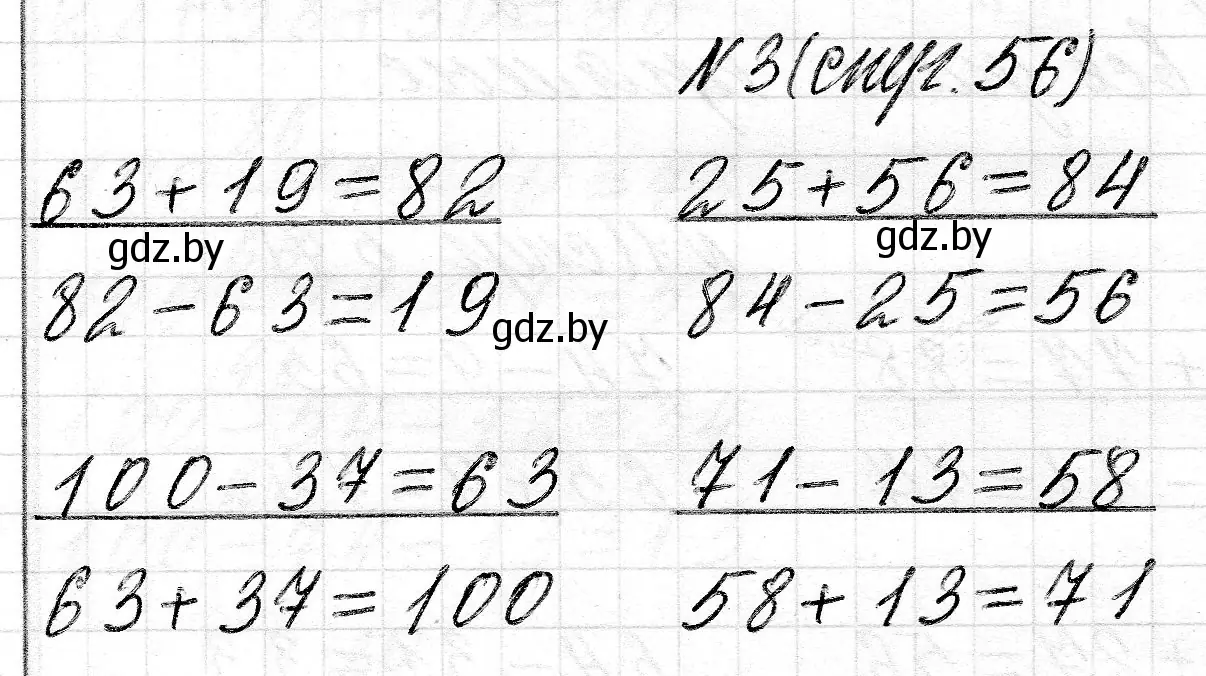 № 3 (стр. 56)
63 + 19 = 82 25 + 56 = 84
gdz.by gdz.by
82 - 63 = 19 84 - 25 = 56
gdz.by
100 - 37 = 63 71 - 13 = 58
63 + 37 = 100 58 + 13 = 71